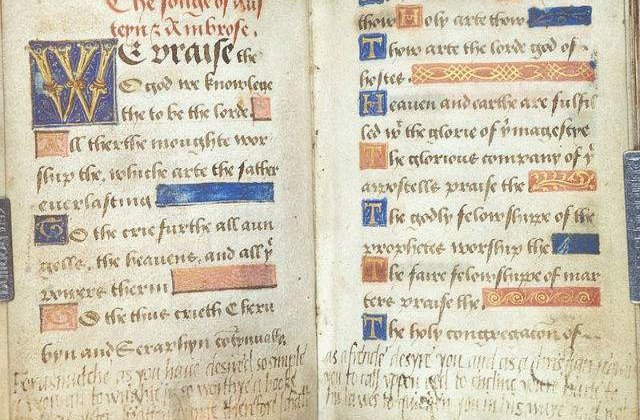 The songe of Aus
teyn & Ambrose.
WE praise the
O god we knowlege
the to be the lorde
All the erthe moughte wor
ship the, whiche arte the father
everlasting
To the crie furthe all aun
gells, the heavens, and all yͤ
powers therin
To the thus crieth Cheru
byn and Seraphyn contynually
as you have desired so simple
thow Holy arte thow
Thow arte the lorde god of
hostes.
Heaven and earthe are fulfil
led wͭ the glorie of yͤ magestye
The glorious company of yͤ
apostells praise the
The godly felowshippe of the
prophetes worship the
The faire felowshippe of mar
ters praise the,
The holy congregacion of
desyre you and as a
you to call upon god to encline
to quycken you in his waye